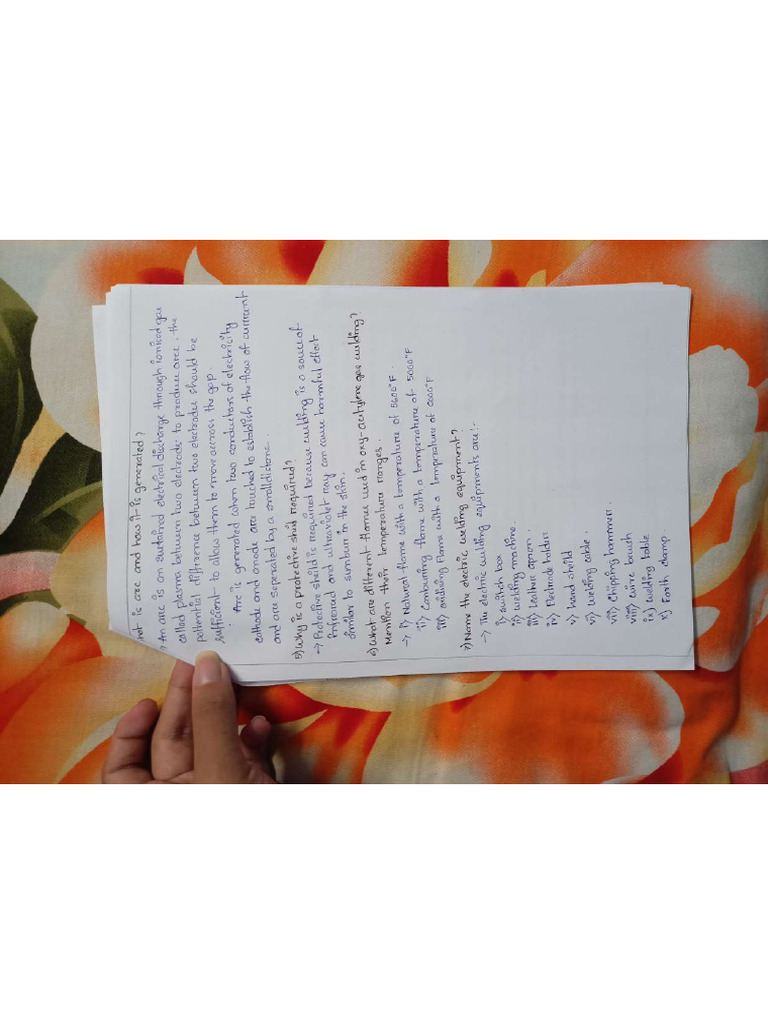 hat is arc and how it is generated?
An arc is an sustained electrical discharge through ionised gas
called plasma between two electrods; to produce arc, the
potential difference between two electrodes should be
sufficient to allow them to move across the gap.
Arc is generated when two conductors of electricity
cathode and anode are touched to establish the flow of current
and are seperated by a small distance.
5) Why is a protective sheild required?
→ Protective sheild is required because welding is a source of
Infrared and ultraviolet ray can cause harmful effort
similar to sunburn in the skin.
6) What are different flames used in oxy-acetylene gas welding?
Mention their temperature ranges.
→ i) Natural flame with a temperature of 5600°F.
ii) Carburing flame with a temperature of 5000°F
iii) oxidising flame with a temperature of 6000°F
7) Name the electric welding equipment?
→ The electric welding equipments are:-
i) switch box
ii) welding machine.
iii) Leather apron.
iv) Electrode holders
v) hand sheild
vi) Welding cable.
vii) Chipping hammer.
viii) wire brush
ix) Welding table
x) Earth clamp